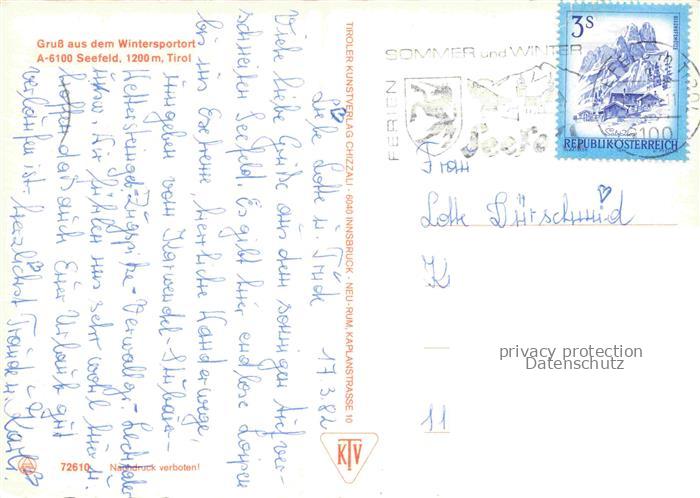 Gruß aus dem Wintersportort
A-6100 Seefeld, 1200 m, Tirol
17.3.82
Liebe Lotte u. Trude
Viele liebe Grüße aus dem sonnigen tiefver-
schneiten Seefeld. Es gibt hier endlose Loipen
bis ins Extreme, herrliche Wanderwege,
umgeben vom Karwendel-Stubaier-
Wettersteingeb. Zugspitze-Verwallgr.-Lechtaler
Wir fühlen uns sehr wohl hier u.
hoffen daß auch Euer Urlaub gut
verlaufen ist. Herzlichst Traude u. Karl.
72610 Nachdruck verboten!
TIROLER KUNSTVERLAG CHIZZALI · 6040 INNSBRUCK - NEU-RUM, KAPLANSTRASSE 10
KTV
FERIEN
SOMMER und WINTER
Seefeld
6100
3S
BISCHOFSMÜTZE
Salzburg
REPUBLIK ÖSTERREICH
Frau
Lotte Dürschmid
K
11
privacy protection
Datenschutz